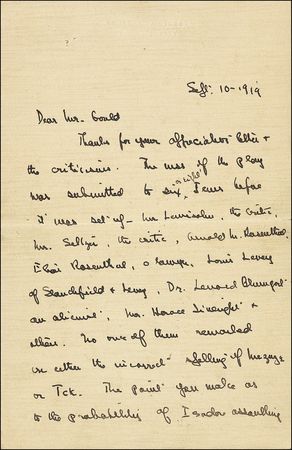 Sept. 10-1919
Dear Mr. Gould
Thanks for your appreciative letter &
the criticisms. The mss of the play
was submitted to six or eight Jews before
it was set up - Mr Lewisohn, the critic,
Mr. Seltzer, the critic, Arnold M. Rosenthal,
Elias Rosenthal, a lawyer, Louis Levey
of Stanchfield & Levy, Dr. Leonard Blumgart
an alienist, Mr. Horace Liveright &
others. No one of them remarked
on either the incorrect spelling of
or Tck. The point you make as
to the probability of Isador assaulting